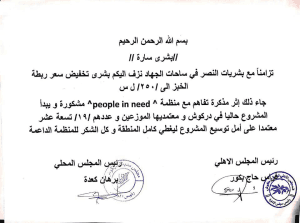 بسم الله الرحمن الرحيم
//بشرى سارة //
تزامناً مع بشريات النصر في ساحات الجهاد نزف اليكم بشرى تخفيض سعر ربطة
الخبز الى /٢٥٠/ ل س
جاء ذلك إثر مذكرة تفاهم مع منظمة ^people in need^ مشكورة و يبدأ
المشروع حاليا في دركوش و معتمديها الموزعين و عددهم /١٩/ تسعة عشر
معتمدا على أمل توسيع المشروع ليغطي كامل المنطقة و كل الشكر للمنظمة الداعمة
رئيس المجلس الاهلي
حاج بكور
رئيس المجلس المحلي
برهان كعدة